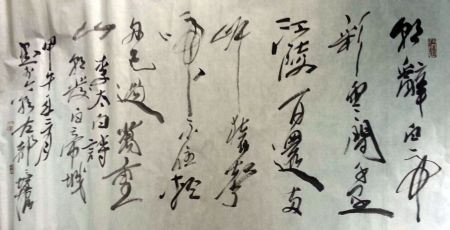 朝辭白帝
彩雲間千里
江陵一日還兩
岸猿聲
啼不住輕
舟已過萬重
山
李太白詩
朝發白帝城
甲午年三月